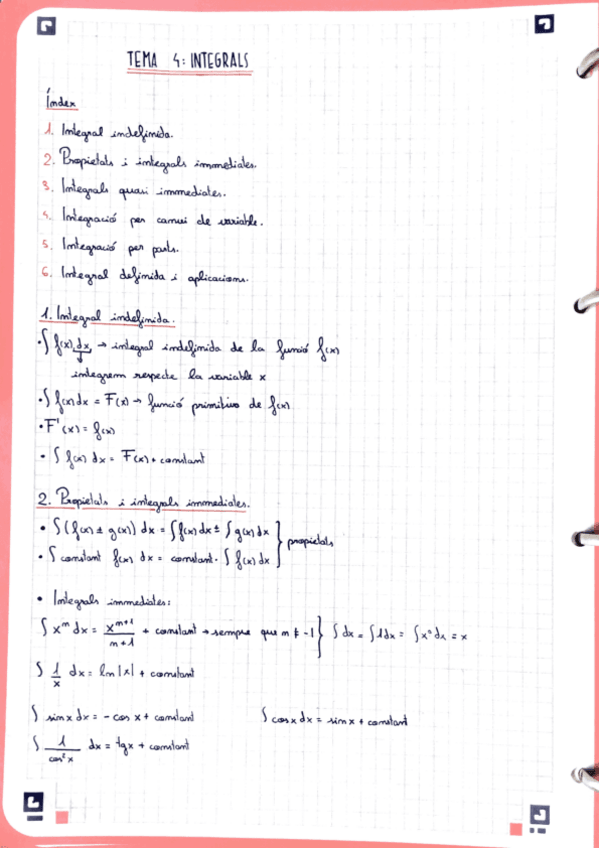 TEMA 4: INTEGRALS
Índex
1. Integral indefinida.
2. Propietats i integrals immediates.
3. Integrals quasi immediates.
4. Integració per canvi de variable.
5. Integració per parts.
6. Integral definida i aplicacions.
1. Integral indefinida.
• ∫ f(x) dx → integral indefinida de la funció f(x)
integrem respecte la variable x
• ∫ f(x) dx = F(x) → funció primitiva de f(x)
• F'(x) = f(x)
• ∫ f(x) dx = F(x) + constant
2. Propietats i integrals immediates.
• ∫ (f(x) ± g(x)) dx = ∫ f(x) dx ± ∫ g(x) dx
• ∫ constant f(x) dx = constant · ∫ f(x) dx } propietats
• Integrals immediates:
∫ xⁿ dx = xⁿ⁺¹/n+1 + constant → sempre que n ≠ -1 } ∫ dx = ∫ 1dx = ∫ x⁰ dx = x
∫ 1/x dx = ln|x| + constant
∫ sinx dx = - cos x + constant ∫ cosx dx = sinx + constant
∫ 1/cos²x dx = tgx + constant